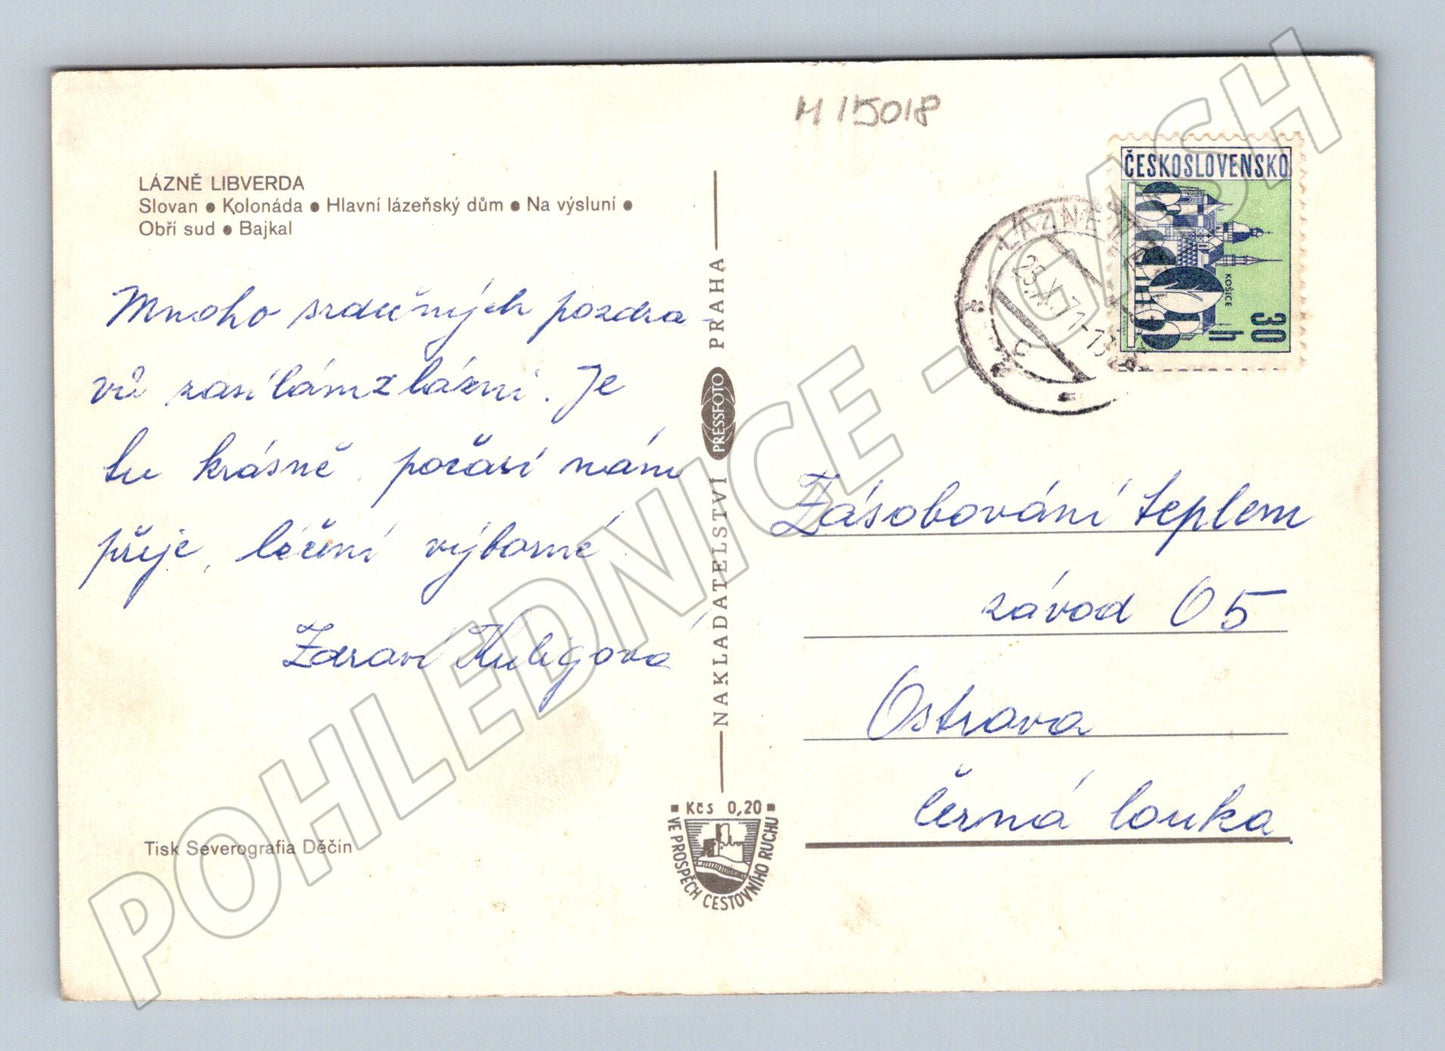 M 15018
LÁZNĚ LIBVERDA
Slovan • Kolonáda • Hlavní lázeňský dům • Na výsluní •
Obří sud • Bajkal
Mnoho srdečných pozdra-
vů zasílám z lázní. Je
tu krásně, počasí nám
přeje, léčení výborné.
Zdraví Kuligová
Tisk Severografia Děčín
NAKLADATELSTVÍ PRESSFOTO PRAHA
Kčs 0,20
VE PROSPĚCH CESTOVNÍHO RUCHU
ČESKOSLOVENSKO
KOŠICE
30 h
LÁZNĚ
Zásobování teplem
závod 05
Ostrava
Černá louka
POHLEDNICE - CASH